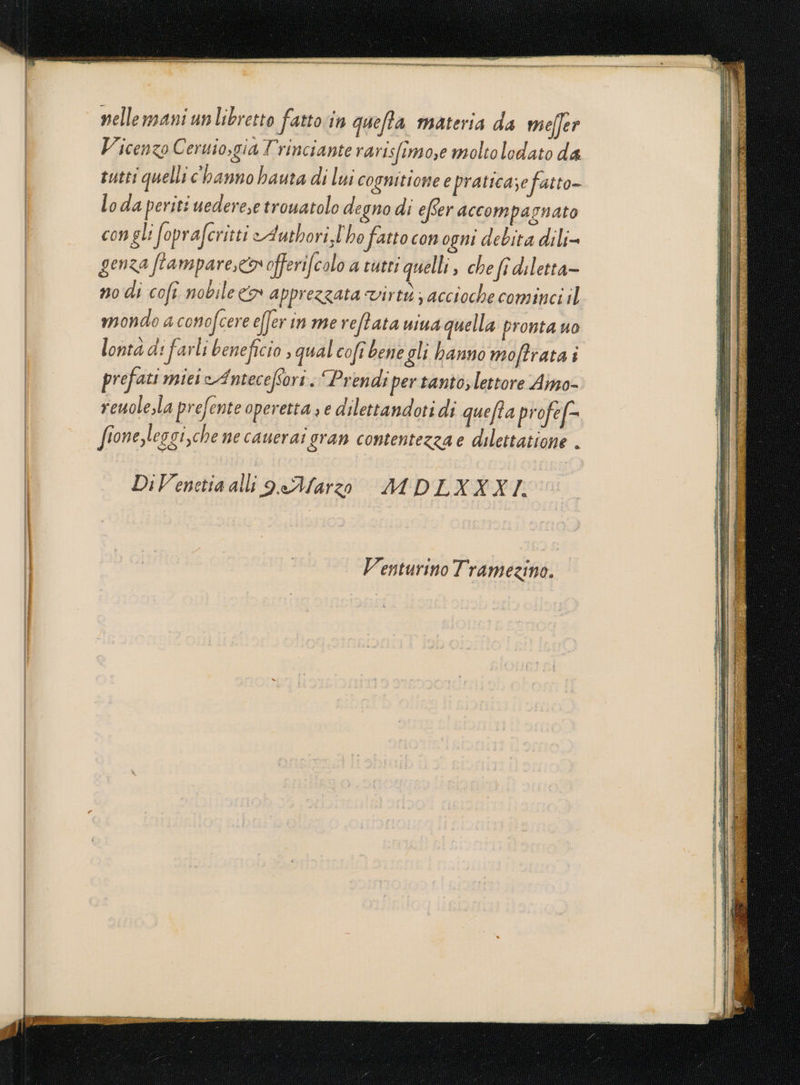 nelle mani un libretto fatto in questa materia da messer
Vicenzo Ceruio, già Trinciante rarissimo, e molto lodato da
tutti quelli c'hanno hauta di lui cognitione e pratica; e fatto-
lo da periti uedere, e trouatolo degno di esser accompagnato
con gli soprascritti Authori, l'ho fatto con ogni debita dili-
genza stampare, & offeriscolo a tutti quelli, che si diletta-
no di cosi nobile & apprezzata virtù; accioche cominci il
mondo a conoscere esser in me restata uiua quella pronta uo
lontà di farli beneficio, qual cosi bene gli hanno mostrata i
prefati miei Antecessori. Prendi per tanto, lettore Amo-
reuole, la presente operetta, e dilettandoti di questa profes-
sione, leggi, che ne cauerai gran contentezza e dilettatione.
Di Venetia alli 9. Marzo MDLXXXI.
Venturino Tramezino.